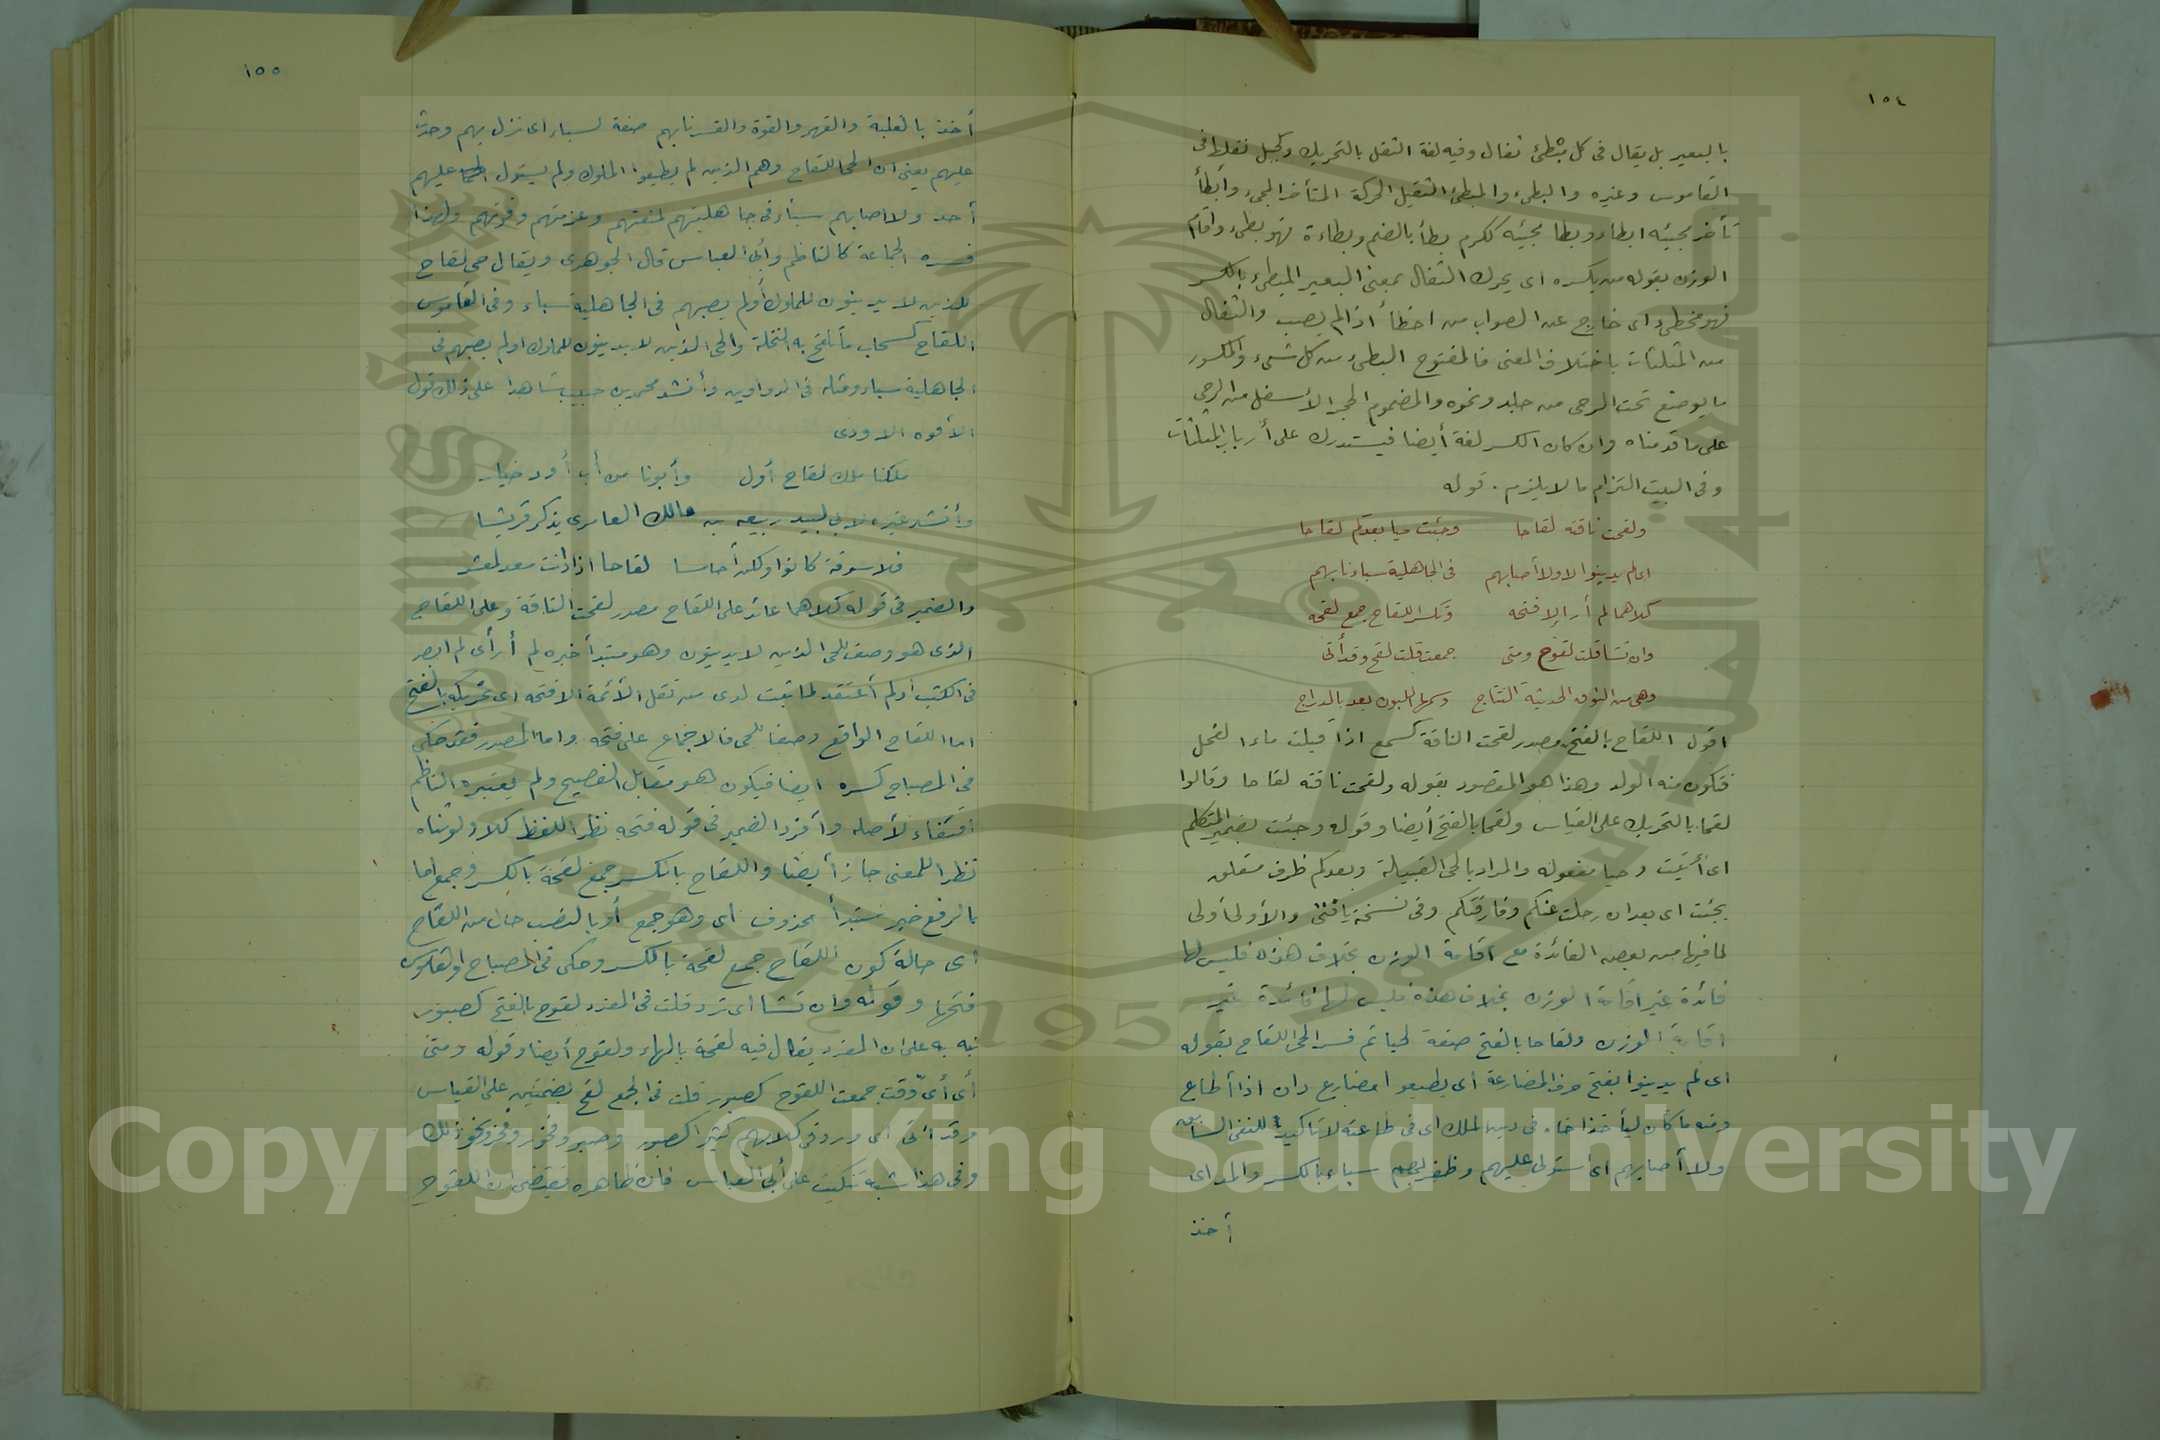 ١٥٤
بالبعير بل يقال في كل بطئ ثفال وفيه لغة الثقل بالتحريك وكجبل نقلها في
القاموس وغيره والبطئ والمبطئ الثقيل الحركة المتأخر المجئ وأبطأ
تأخر مجيئه ابطاء وبطأ مجيئه ككرم بطأ بالضم وبطاءة فهو بطئ وأقام
الوزن بقوله من بكسره اى يحرك الثفال بمعنى البعير المبطئ بالكسر
فهو مخطئ اى خارج عن الصواب من اخطأ اذا لم يصب والثفال
من المثلثات باختلاف المعنى فالمفتوح البطئ من كل شئ والمكسور
ما يوضع تحت الرحى من جلد ونحوه والمضموم الحجر الأسفل من الرحى
على ما قدمناه وان كان الكسر لغة أيضا فيستدرك على أرباب المثلثات
وفى البيت التزام ما لا يلزم . قوله
ولقحت ناقته لقاحا وجئت حيا بعدكم لقاحا
اى لم يدينوا لا ولا أصابهم في الجاهلية سباء نابهم
كلاهما لم أر إلا فتحه وتكسر اللقاح جمع لقحه
وان تشا قلت لقوح ومتى جمعت قلت لقح وقد أتى
وهى من النوق الحديثة النتاج وسمها اللبون بعد بالدراج
اقول اللقاح بالفتح مصدر لقحت الناقة كسمع اذا قبلت ماء الفحل
فتكون منه الولد وهذا هو المقصود بقوله ولقحت ناقته لقاحا وقالوا
لقحا بالتحريك على القياس ولقحا بالفتح أيضا وقوله وجئت بضمير المتكلم
اى أتيت وحيا مفعوله والمراد بالحى القبيلة وبعدكم ظرف متعلق
بجئت اى بعد ان رحلت عنكم وفارقتكم وفى نسخة يا فتى والأولى أولى
لما فيها من بعض الفائدة مع اقامة الوزن بخلاف هذه فليس لها
فائدة غير اقامة الوزن بخلاف هذه فليس لها فائدة غير
اقامة الوزن ولقاحا بالفتح صفة لحيا ثم فسر الحى اللقاح بقوله
اى لم يدينوا بفتح حرف المضارعة أى يطيعوا مضارع دان اذا أطاع
ومنه ما كان ليأخذ اخاه فى دين الملك اى فى طاعته لا تأكيد للنفى السابق
ولا أصابهم اى استولى عليهم وظفر بهم سباء بالكسر والمد اى
أخذ
١٥٥
أخذ بالغلبة والقهر والقوة والقسر نابهم صفة لسباء اى نزل بهم وحدث
عليهم يعنى ان الحى اللقاح وهم الذين لم يطيعوا الملوك ولم يستول عليهم
أحد ولا اصابهم سباء فى جاهليتهم لمنعتهم وعزمتهم وقوتهم وبهذا
فسره الجماعة كالناظم وأبى العباس قال الجوهرى ويقال حى لقاح
للذين لا يدينون للملوك أو لم يصبهم فى الجاهلية سباء وفى القاموس
اللقاح كسحاب ما تلقح به النخلة والحى الذين لا يدينون للملوك او لم يصبهم فى
الجاهلية سباء ومثله فى الدواوين وأنشد محمد بن حبيب شاهدا على ذلك قول
الأفوه الاودى
ملكنا ملك لقاح أول وأبونا من أب أود خيار
وأنشد غيره لابى لبيد ربيعة بن مالك العامرى يذكر قريشا
فلا سوقة كانوا ولكن أحامسا لقاحا اذا دانت معد لمعشر
والضمير فى قوله كلاهما عائد على اللقاح مصدر لقحت الناقة وعلى اللقاح
الذى هو وصف للحى الذين لا يدينون وهو مبتدأ خبره لم أر أى لم ابصر
فى الكتب او لم أعتقد لما ثبت لدى من نقل الأئمة الا فتحه اى تحريكه بالفتح
اما اللقاح الواقع وصفا للحى فالاجماع على فتحه واما المصدر فقد حكى
فى المصباح كسره ايضا فيكون هو مقابل الفصيح ولم يعتبره الناظم
اقتفاء لأصله وأفرد الضمير فى قوله فتحه نظرا للفظ كلا ولو ثناه
نظرا للمعنى جاز أيضا واللقاح بالكسر جمع لقحة بالكسر وجمع اما
بالرفع خبر مبتدأ محذوف اى وهو جمع أو بالنصب حال من اللقاح
اى حالة كون اللقاح جمع لقحة بالكسر وحكى فى المصباح والقاموس
فتحها وقوله وان تشا اى ترد قلت فى المفرد لقوح بالفتح كصبور
نبه به على ان المفرد يقال فيه لقحة بالهاء ولقوح أيضا وقوله ومتى
أى أىّ وقت جمعت اللقوح كصبور قلت فى الجمع لقح بضمتين على القياس
وقد اتى اى ورد فى كلامهم كثيرا كصبور وصبر وفخور وفخر ونحو ذلك
وفى هذا شبه تنكيت على أبى العباس فان ظاهره يقتضى ان اللقوح
Copyright © King Saud University
1957